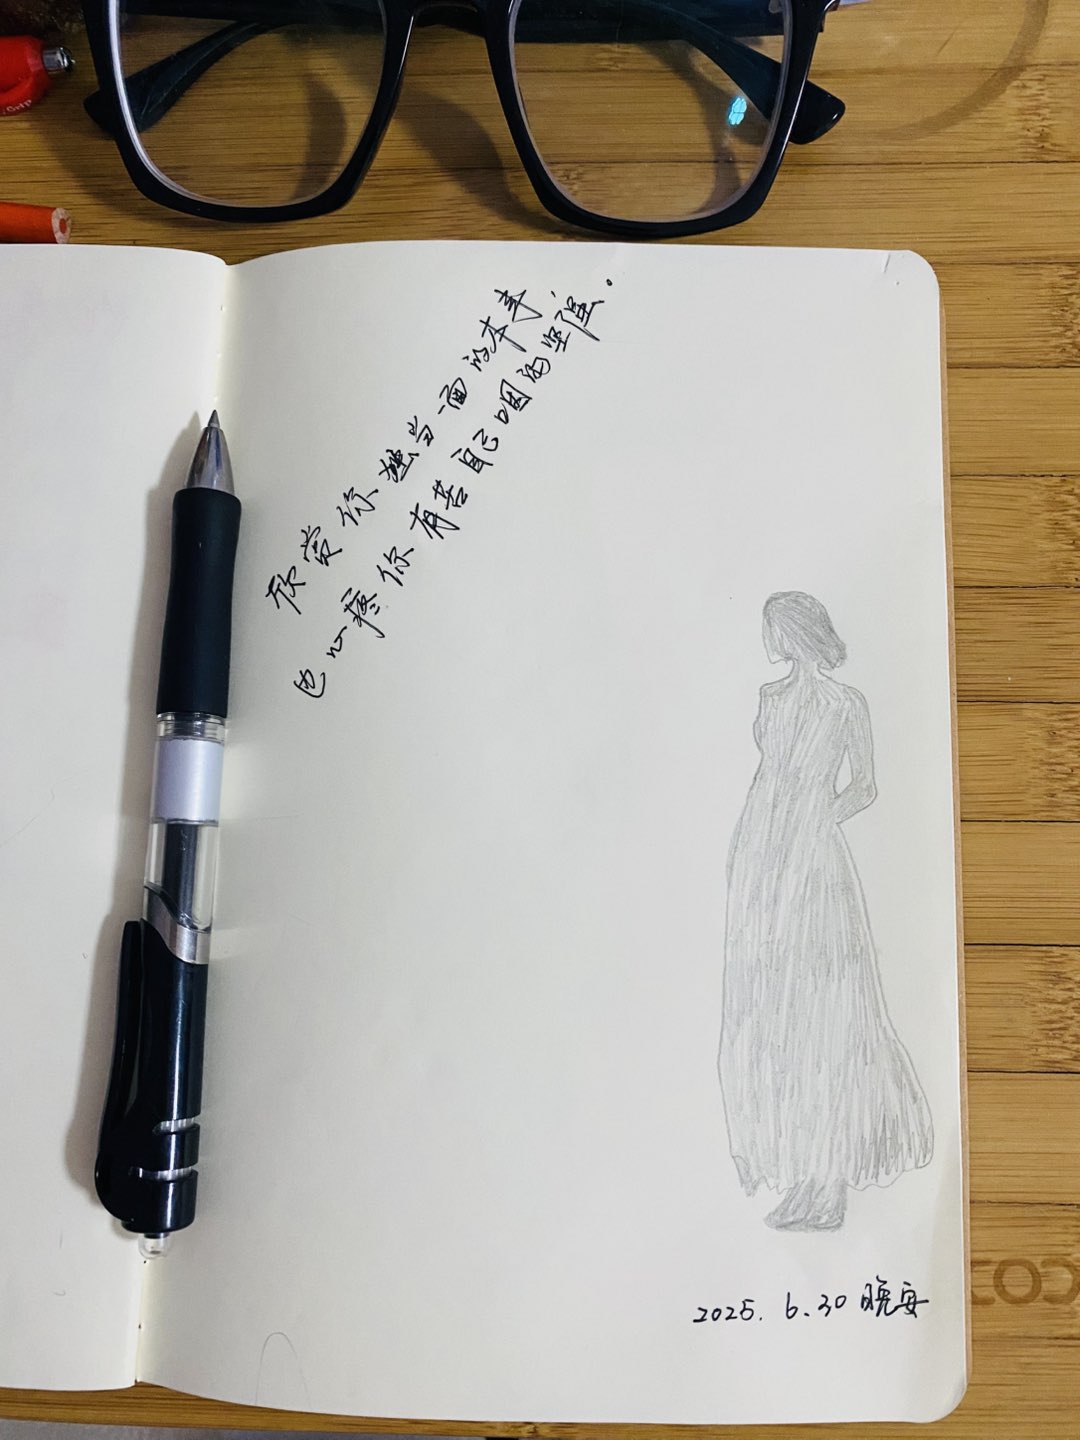 欣赏你独当一面的本事.
也心疼你有苦自己咽的坚强.
2025. 6.30 晚安
Grip